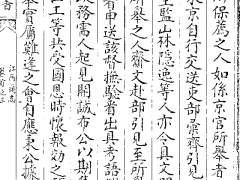 保薦之人如係京官所舉者
京自行交送吏部彙齊引見
監山林隱逸等人亦令具文
所舉之人齎文赴部引見至所
申送該督撫驗看出具考語
務需人起見開誠布公以期
工等共受國恩時懷報効之
江西通志
卷首之三
實屬難逢之會自應秉公據